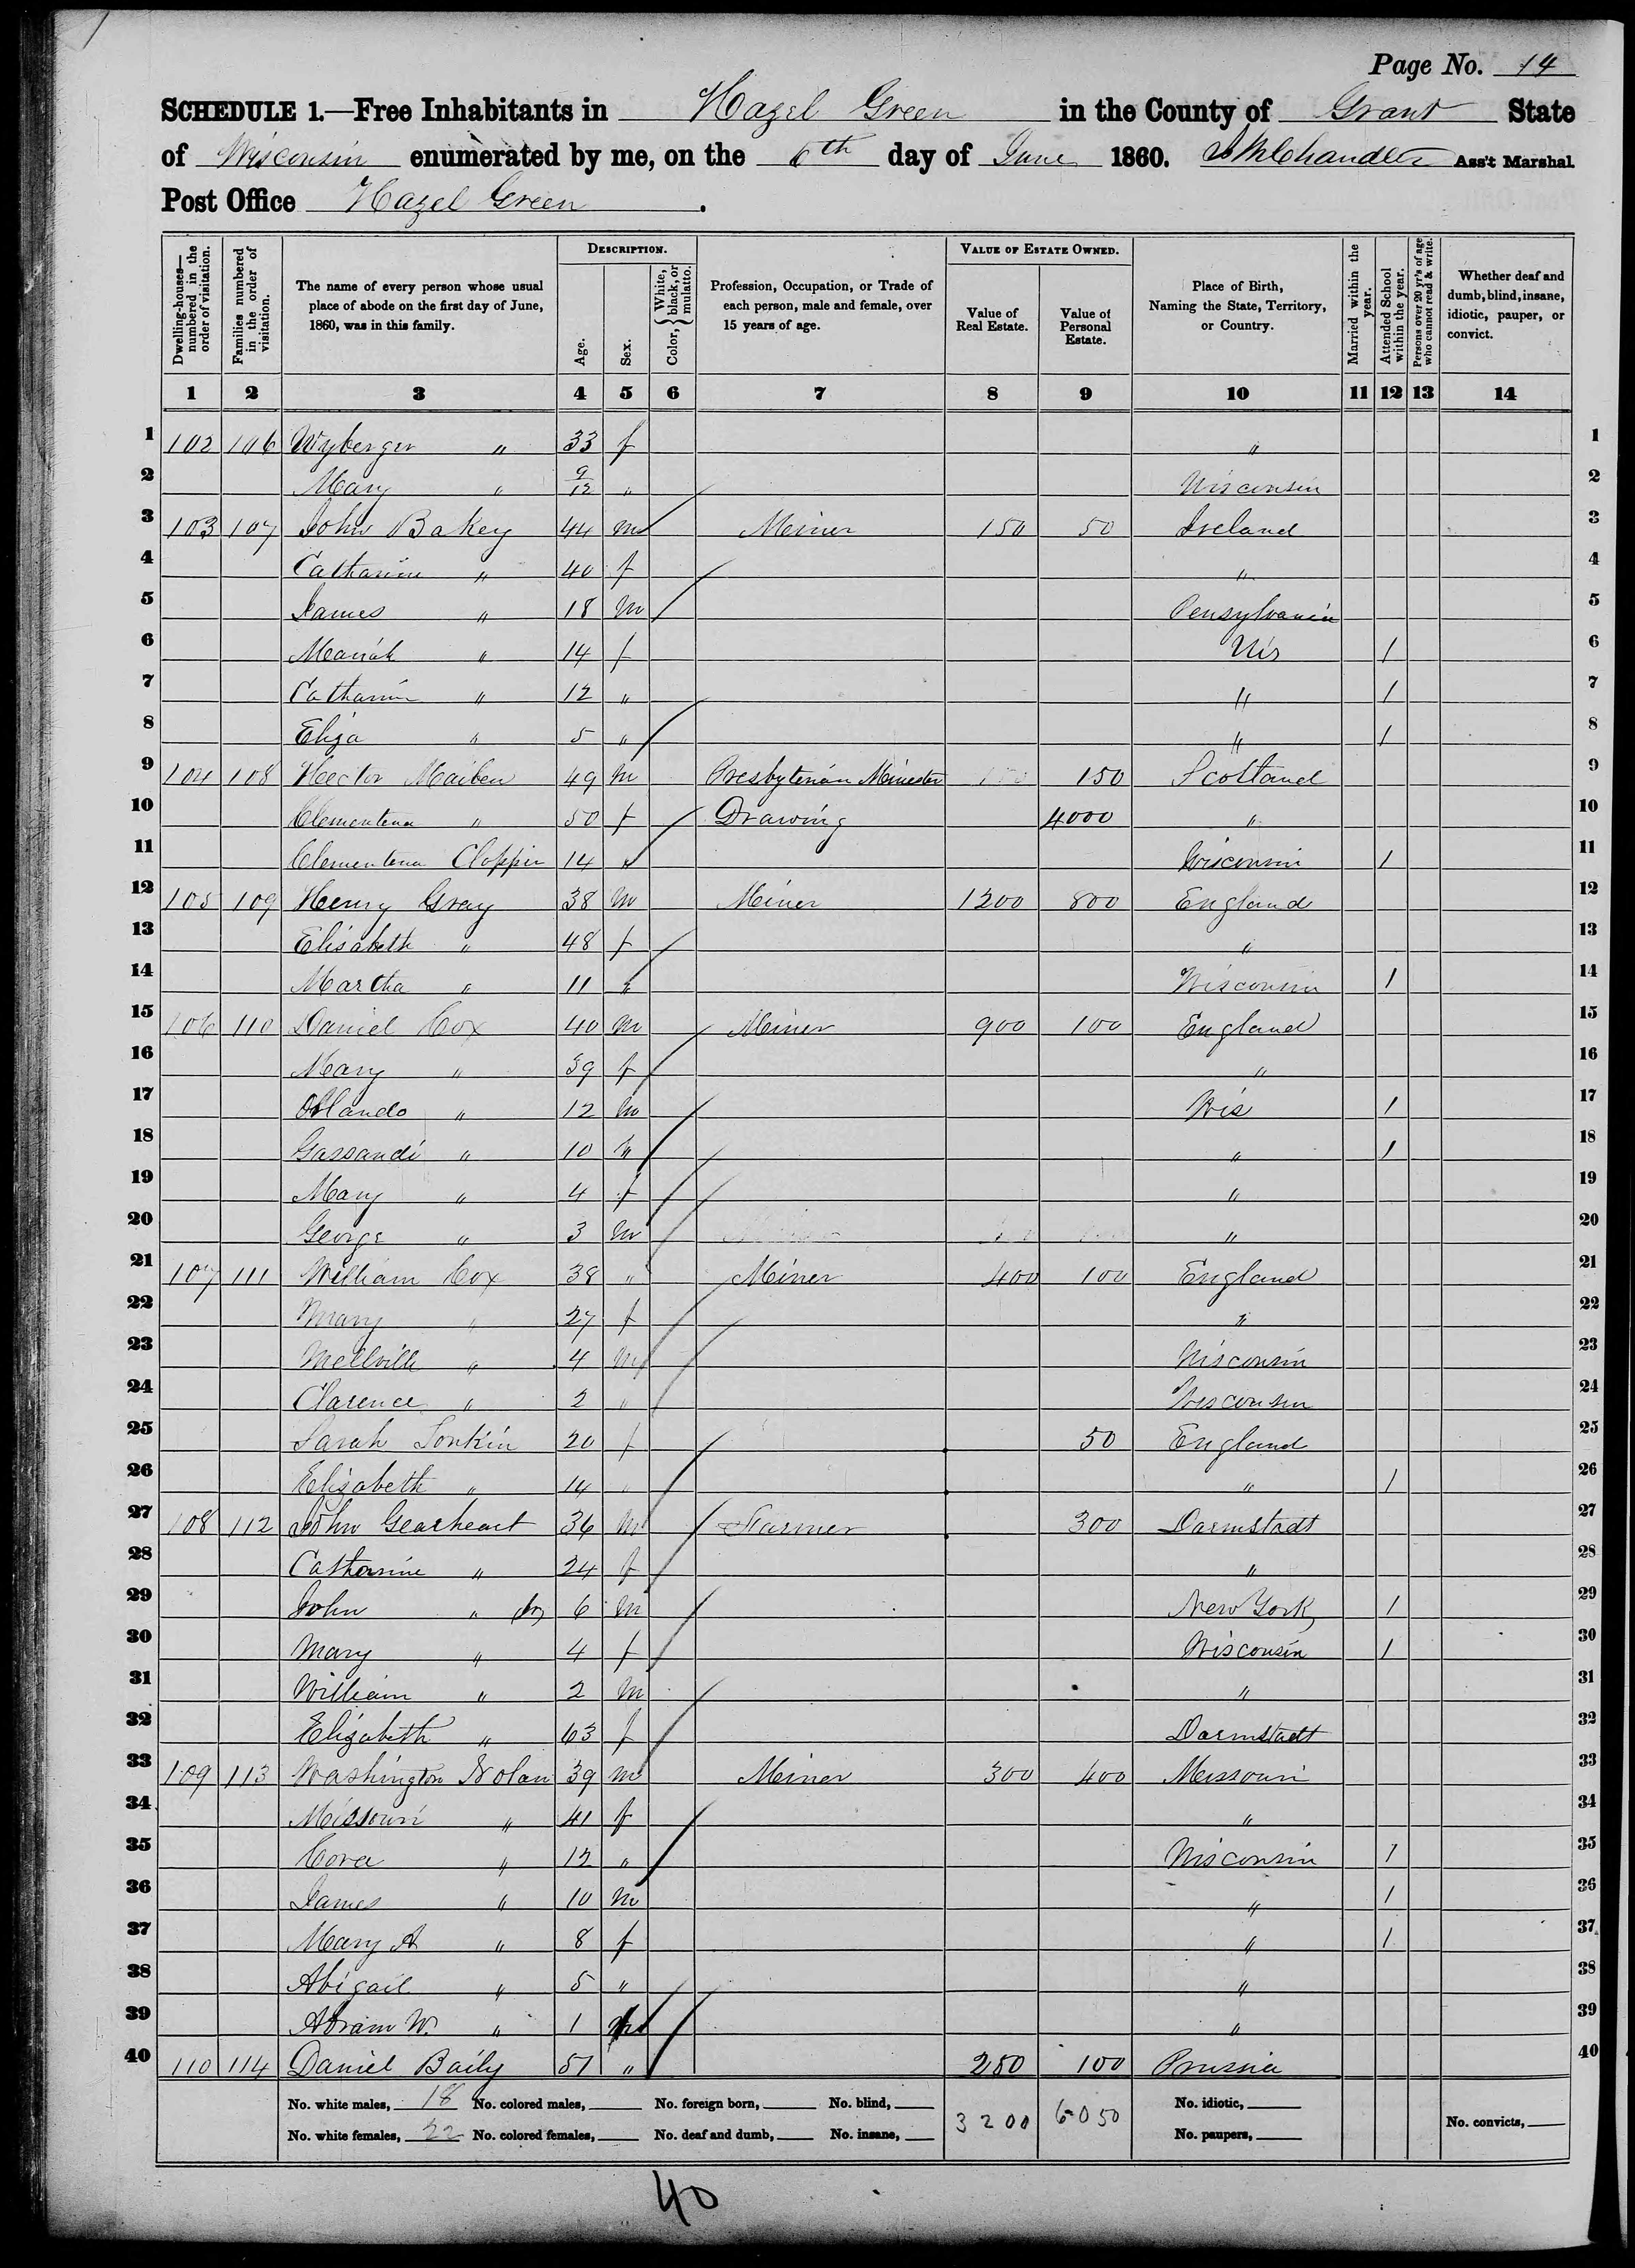 Page No. 14
SCHEDULE 1.—Free Inhabitants in Hazel Green in the County of Grant State
of Wisconsin enumerated by me, on the 6th day of June 1860. Chandler Ass't Marshal
Post Office Hazel Green.
Dwelling-houses—numbered in the order of visitation. Families numbered in the order of visitation. The name of every person whose usual place of abode on the first day of June, 1860, was in this family. DESCRIPTION. Age. Sex. Color, {White, black, or mulatto. Profession, Occupation, or Trade of each person, male and female, over 15 years of age. VALUE OF ESTATE OWNED. Value of Real Estate. Value of Personal Estate. Place of Birth, Naming the State, Territory, or Country. Married within the year. Attended School within the year. Persons over 20 yr's of age who cannot read & write. Whether deaf and dumb, blind, insane, idiotic, pauper, or convict.
1 2 3 4 5 6 7 8 9 10 11 12 13 14
1 102 106 Wyberger " 33 f " 1
2 Mary " 9/12 " Wisconsin 2
3 103 107 John Bakey 44 m Meiner 150 50 Ireland 3
4 Catharine " 40 f " 4
5 James " 18 m Pensylvania 5
6 Mariah " 14 f Wis 1 6
7 Catharin " 12 " " 1 7
8 Eliza " 5 " " 1 8
9 104 108 Hector Maiben 49 m Presbyterian Meinester 150 Scotland 9
10 Clementena " 50 f Drawing 4000 " 10
11 Clementena Cloppin 14 " Wisconsin 1 11
12 105 109 Henry Gray 38 m Meiner 1200 800 England 12
13 Elisabeth " 48 f " 13
14 Martha " 11 " Wisconsin 1 14
15 106 110 Daniel Cox 40 m Meiner 900 100 England 15
16 Mary " 39 f " 16
17 Orlando " 12 m Wis 1 17
18 Gassandi " 10 " " 1 18
19 Mary " 4 f " 19
20 George " 3 m " 20
21 107 111 William Cox 38 " Meiner 400 100 England 21
22 Mary " 27 f " 22
23 Mellville " 4 m Wisconsin 23
24 Clarence " 2 " Wisconsin 24
25 Sarah Sonkin 20 f 50 England 25
26 Elizabeth " 14 " " 1 26
27 108 112 John Gearheart 36 m Farmer 300 Darmstadt 27
28 Catharine " 24 f " 28
29 John " Jr 6 m New York 1 29
30 Mary " 4 f Wisconsin 1 30
31 William " 2 m " 31
32 Elizabeth " 63 f Darmstadt 32
33 109 113 Washington Nolan 39 m Meiner 300 400 Missouri 33
34 Missouri " 41 f " 34
35 Cora " 12 " Wisconsin 1 35
36 James " 10 m " 1 36
37 Mary A " 8 f " 1 37
38 Abigail " 5 " " 38
39 Abram W. " 1 m " 39
40 110 114 Daniel Baily 51 " 250 100 Prussia 40
No. white males, 18 No. colored males, No. foreign born, No. blind, 3200 6050 No. idiotic,
No. white females, 22 No. colored females, No. deaf and dumb, No. insane, No. paupers, No. convicts,
40